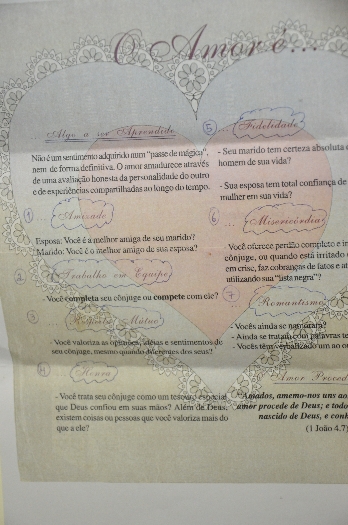 O Amor é...
Algo a ser Aprendido
Não é um sentimento adquirido num "passe de mágica",
nem de forma definitiva. O amor amadurece através
de uma avaliação honesta da personalidade do outro
e de experiências compartilhadas ao longo do tempo.
1 ... Amizade
Esposa: Você é a melhor amiga de seu marido?
Marido: Você é o melhor amigo de sua esposa?
2 ... Trabalho em Equipe
- Você completa seu cônjuge ou compete com ele?
3 ... Respeito Mútuo
- Você valoriza as opiniões, idéias e sentimentos de
seu cônjuge, mesmo quando diferentes dos seus?
4 ... Honra
- Você trata seu cônjuge como um tesouro especial
que Deus confiou em suas mãos? Além de Deus,
existem coisas ou pessoas que você valoriza mais do
que a ele?
5 ... Fidelidade
- Seu marido tem certeza absoluta
homem de sua vida?
- Sua esposa tem total confiança de
mulher em sua vida?
6 ... Misericórdia
- Você oferece perdão completo e
cônjuge, ou quando está irritado
em crise, faz cobranças de fatos e
utilizando sua "lista negra"?
7 ... Romantismo
- Vocês ainda se namoram?
- Ainda se tratam com palavras
- Vocês têm verbalizado um ao
Amor Proced
"Amados, amemo-nos uns ao
amor procede de Deus; e todo
nascido de Deus, e conh
(1 João 4.7)